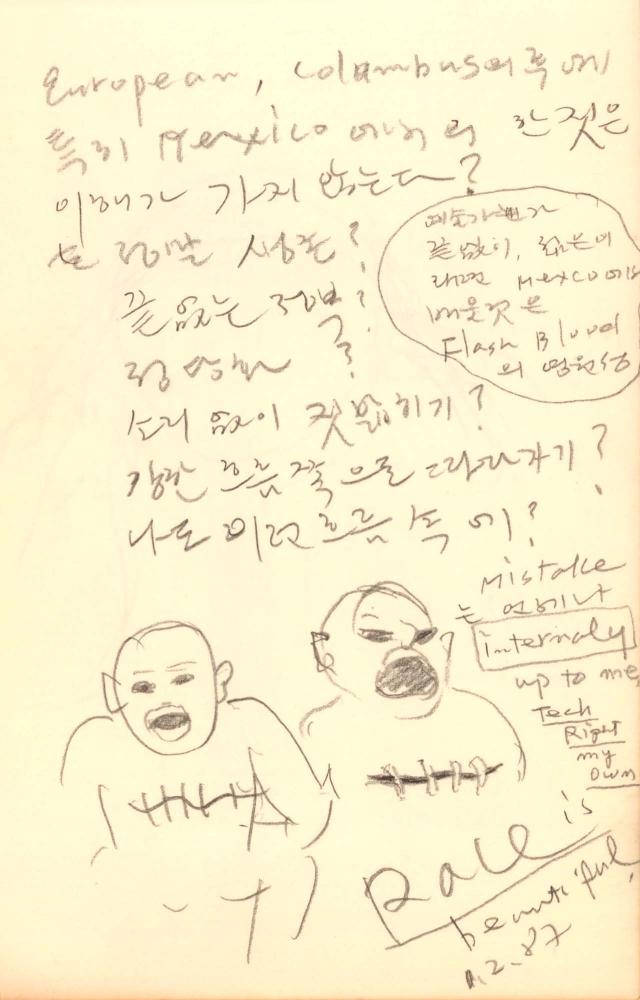 European, Columbus의 후예
특히 Mexico 에서의 한 짓은
이해가 가지 않는다?
생존?
끝 없는 정복?
?
소리 없이 짓밟히기?
강한 흐름 쪽으로 따라가기?
나도 이런 흐름 속에?
예술가
끝없이, 젊은이
라면 Mexico에서
배울것은
Flash Blood
의 영원성
Mistake
는 언제나
internaly
up to me,
Tech
Right
my
own
Race is
beautiful,
1.2-87